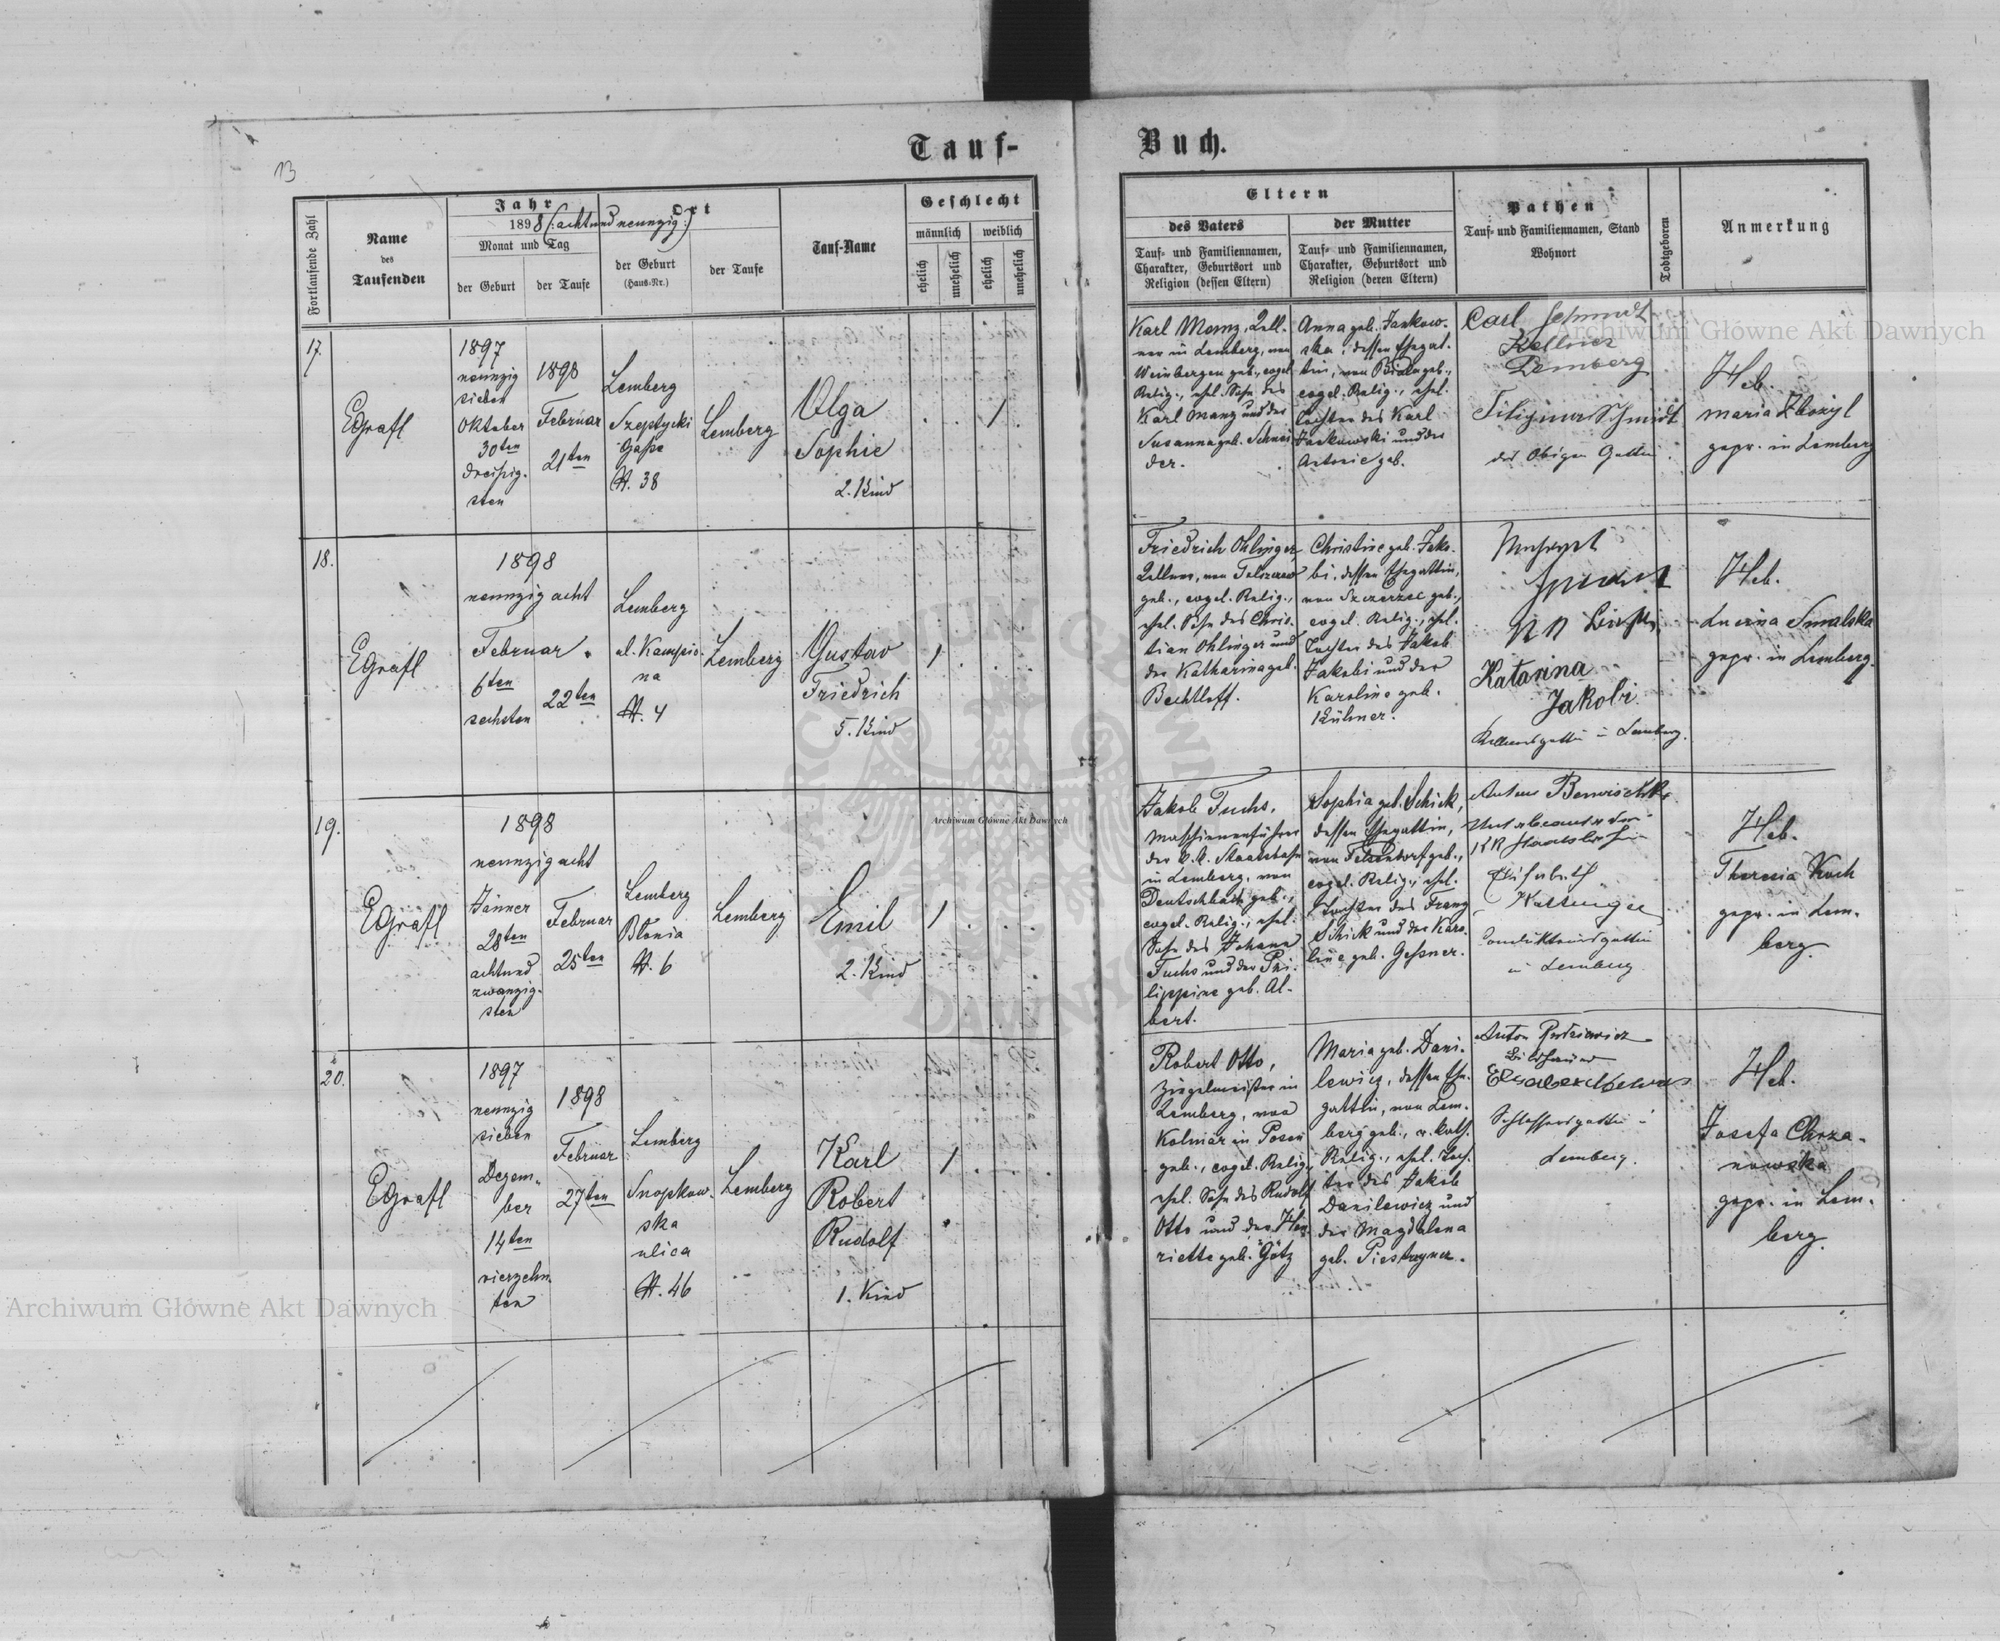 13
Tauf-
Buch.
Fortlaufende Zahl
Name
des
Taufenden
Jahr
1898 (: acht und neunzig :)
Monat und Tag
der Geburt
der Taufe
Ort
der Geburt
(Haus-Nr.)
der Taufe
Tauf-Name
Geschlecht
männlich
weiblich
ehelich
unehelich
ehelich
unehelich
Eltern
des Vaters
Tauf- und Familiennamen,
Charakter, Geburtsort und
Religion (dessen Eltern)
der Mutter
Tauf- und Familiennamen,
Charakter, Geburtsort und
Religion (deren Eltern)
Pathen
Tauf- und Familiennamen, Stand
Wohnort
Todtgeboren
Anmerkung
17.
EGrafl
1897
neunzig
sieben
Oktober
30ten
dreißig-
sten
1898
Februar
21ten
Lemberg
Szeptycki
Gasse
N. 38
Lemberg
Olga
Sophie
2. Kind
1
Karl Manz, Kell-
ner in Lemberg, von
Weinbergen geb., evgel.
Relig., ehl. Sohn des
Karl Manz und der
Susanna geb. Schnei
der.
Anna geb. Jankow-
ska, dessen Ehegat-
tin, von geb.,
evgel. Relig., ehel.
Tochter des Karl
Jankowski und der
Antonie geb.
Carl Schmidt
Kellner
Lemberg
Schmidt
des Obigen Gattin
Heb.
Maria
gepr. in Lemberg
18.
EGrafl
1898
neunzig acht
Februar
6ten
sechsten
22ten
Lemberg
ul. Kampia-
na
N. 4
Lemberg
Gustav
Friedrich
5. Kind
1
Friedrich Ohlinger
Kellner, von
geb., evgel. Relig.,
ehel. Sohn des Chris-
tian Ohlinger und
der Katharina geb.
Bechtloff.
Christine geb. Jako-
bi, dessen Ehegattin,
von Szczerzec geb.,
evgel. Relig., ehel.
Tochter des Jakob
Jakobi und der
Karoline geb.
Kühner.
Katarina
Jakobi
Kellnersgattin in Lemberg.
Heb.
Lucina Smalska
gepr. in Lemberg.
19.
EGrafl
1898
neunzig acht
Jänner
28ten
achtund
zwanzig-
sten
Februar
25ten
Lemberg
Blonia
N. 6
Lemberg
Emil
2. Kind
1
Jakob Fuchs,
Maschinenführer
der k. k. Staatsbahn
in Lemberg, von
Deutschbach geb.,
evgel. Relig., ehel.
Sohn des Johann
Fuchs und der Phi-
lippine geb. Al-
bert.
Sophia geb. Schick,
dessen Ehegattin,
von Felsendorf geb.,
evgel. Relig., ehel.
Tochter des Franz
Schick und der Karo-
line geb. Geßner.
Unterbeamter der
KK Staatsbahn
Elisabeth
Conducteursgattin
in Lemberg
Heb.
Theresia Koch
gepr. in Lem-
berg.
20.
EGrafl
1897
neunzig
sieben
Dezem-
ber
14ten
vierzehn-
ten
1898
Februar
27ten
Lemberg
Snopkow-
ska
ulica
N. 46
Lemberg
Karl
Robert
Rudolf
1. Kind
1
Robert Otto,
Ziegelmeister in
Lemberg, von
Kolmar in Posen
geb., evgel. Relig.,
ehel. Sohn des Rudolf
Otto und der Hen-
riette geb. Götz
Maria geb. Dani-
lewicz, dessen Ehe-
gattin, von Lem-
berg geb., r. kath.
Relig., ehel. Toch-
ter des Jakob
Danilewicz und
der Magdalena
geb.
Anton
Bildhauer
Schlossersgattin in
Lemberg.
Heb.
Josefa Chrza-
nowska
gepr. in Lem-
berg.
Archiwum Główne Akt Dawnych
Archiwum Główne Akt Dawnych
Archiwum Główne Akt Dawnych